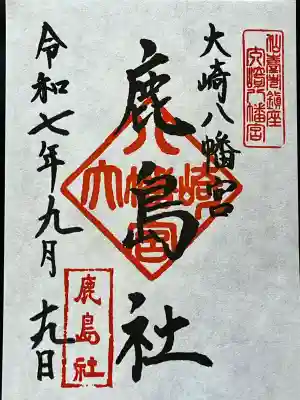 大崎八幡宮
大崎八幡宮
鹿島社
大崎八幡宮
令和七年九月十九日
鹿島社